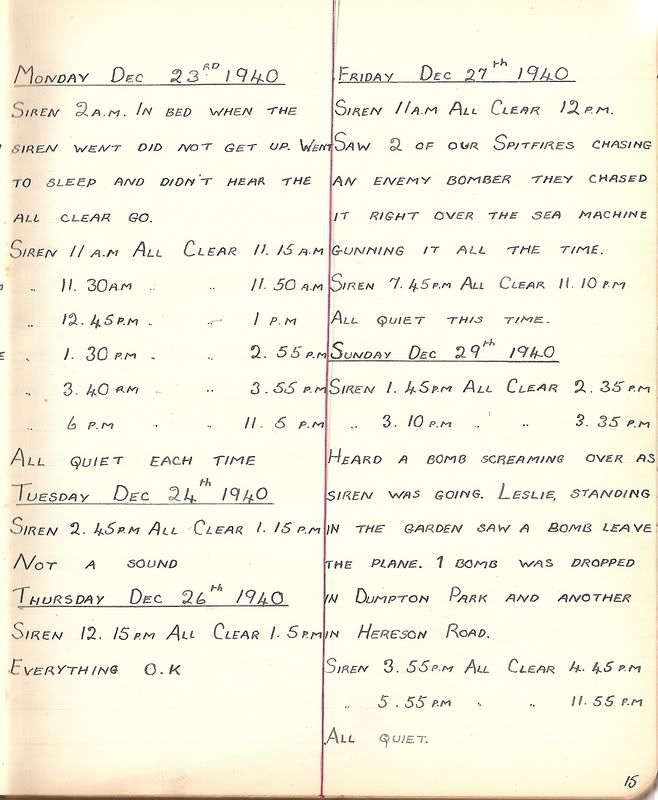 MONDAY DEC 23RD 1940
SIREN 2 A.M. IN BED WHEN THE
SIREN WENT DID NOT GET UP. WENT
TO SLEEP AND DIDN'T HEAR THE
ALL CLEAR GO.
SIREN 11 A.M ALL CLEAR 11.15 A.M
" 11.30AM " " 11.50 A.M
" 12.45 P.M. " " 1 P.M
" 1.30 P.M " " 2.55 P.M
" 3.40 RM " " 3.55 P.M
" 6 P.M " " 11.5 P.M
ALL QUIET EACH TIME
TUESDAY DEC 24th 1940
SIREN 2.45PM ALL CLEAR 1.15 P.M
NOT A SOUND
THURSDAY DEC 26th 1940
SIREN 12.15 PM ALL CLEAR 1.5 P.M
EVERYTHING O.K
FRIDAY DEC 27th 1940
SIREN 11A.M ALL CLEAR 12 P.M.
SAW 2 OF OUR SPITFIRES CHASING
AN ENEMY BOMBER THEY CHASED
IT RIGHT OVER THE SEA MACHINE
GUNNING IT ALL THE TIME.
SIREN 7.45P.M ALL CLEAR 11.10 P.M
ALL QUIET THIS TIME.
SUNDAY DEC 29th 1940
SIREN 1.45PM ALL CLEAR 2.35 P.M
" 3.10 P.M " " 3.35 P.M
HEARD A BOMB SCREAMING OVER AS
SIREN WAS GOING. LESLIE, STANDING
IN THE GARDEN SAW A BOMB LEAVE
THE PLANE. 1 BOMB WAS DROPPED
IN DUMPTON PARK AND ANOTHER
IN HERESON ROAD.
SIREN 3.55P.M ALL CLEAR 4.45 P.M
" 5.55 P.M " " 11.55 P.M
ALL QUIET.
15